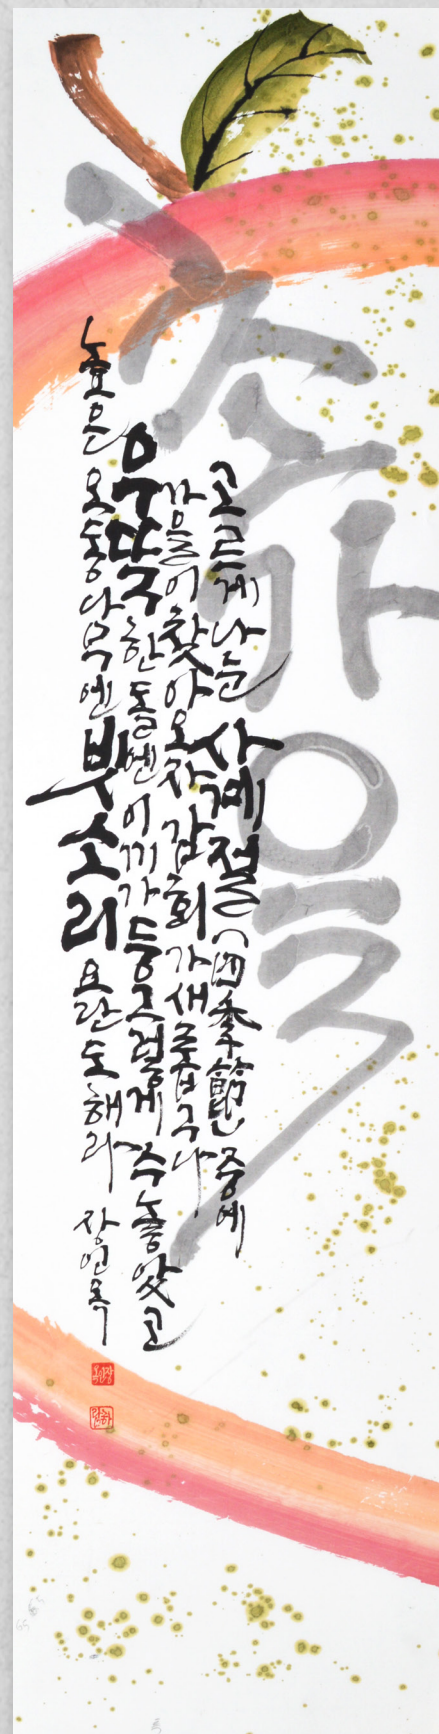 초가을
고르게 나눈 사계절(四季節) 중에
가을이 찾아오자 감회가 새롭구나
우뚝한 돌엔 이끼가 둥그렇게 수놓았고
높은 오동나무엔 빗소리 요란도 해라